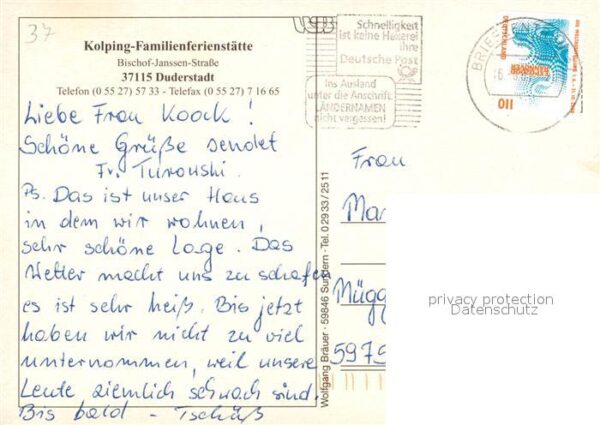 37
Kolping-Familienferienstätte
Bischof-Janssen-Straße
37115 Duderstadt
Telefon (0 55 27) 57 33 - Telefax (0 55 27) 7 16 65
Liebe Frau Koock !
Schöne Grüße sendet
Fr. Turowski.
Ps. Das ist unser Haus
in dem wir wohnen,
sehr schöne Lage. Das
Wetter macht uns zu schafen
es ist sehr heiß. Bis jetzt
haben wir nicht zu viel
unternommen, weil unsere
Leute ziemlich schwach sind.
Bis bald - Tschüß
Wolfgang Bräuer · 59846 Sundern · Tel. 0 29 33 / 25 11
Schnelligkeit
ist keine Hexerei
ihre
Deutsche Post
Ins Ausland
unter die Anschrift
LÄNDERNAMEN
nicht vergessen!
BRIEFZENT
DEUTSCHLAND
110
Frau
Mar
Mügg
5975
privacy protection
Datenschutz